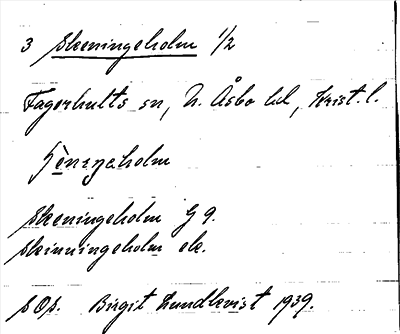 3 Skeningeholm 1/2
Fagerhults sn, N. Åsbo hd, Krist. l.
Skeningeholm G 9.
Skinningeholm ek.
s Os. Birgit Lundkvist 1939.